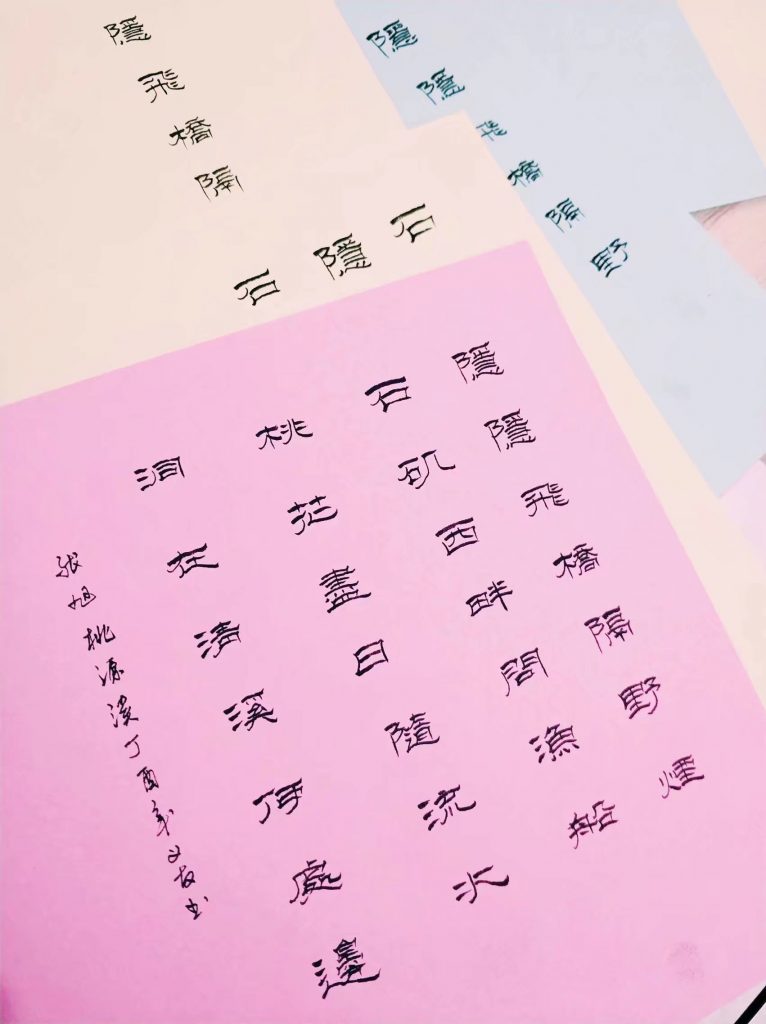 隱隱飛橋隔野
隱飛橋隔
石
隱
石
隱隱飛橋隔野煙
石矶西畔問漁船
桃花盡日隨流水
洞在清溪何處邊
张旭桃源溪丁酉年书